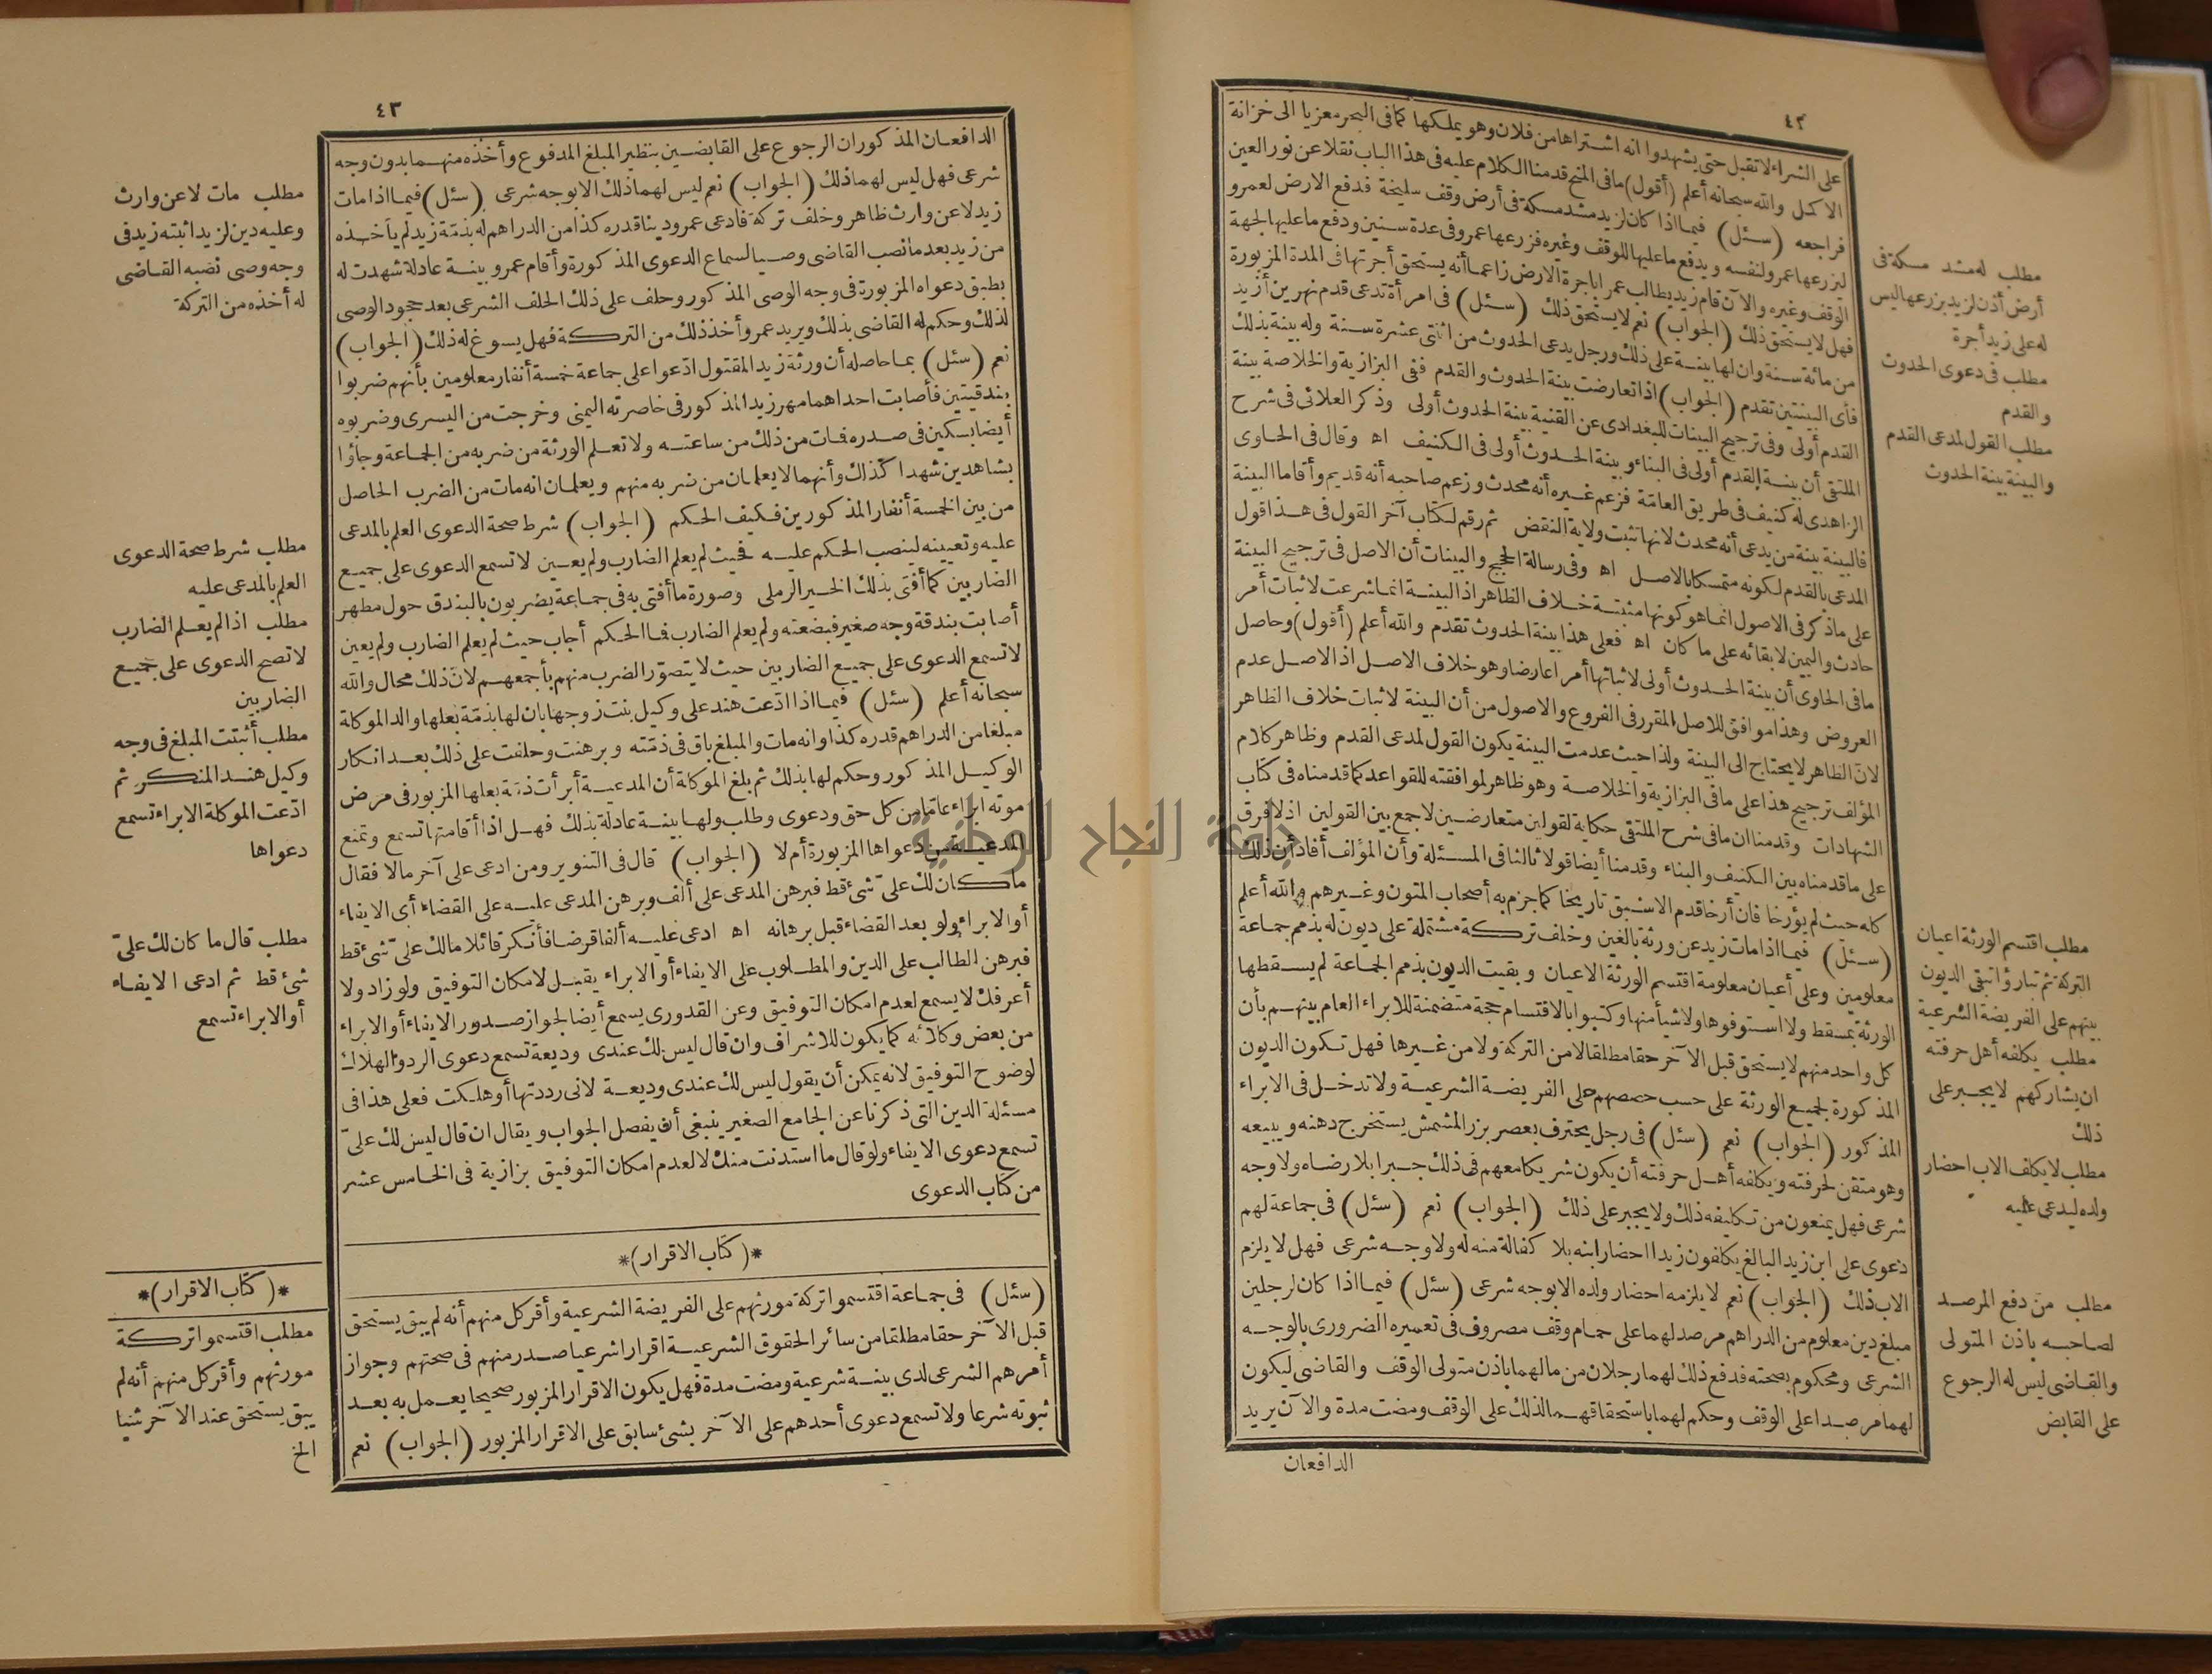 ٤٢
على الشراء لا تقبل حتى يشهدوا انه اشتراها من فلان وهو يملكها كما فى البحر معزيا الى خزانة
الاكمل والله سبحانه أعلم (أقول) ما فى المنح قدمنا الكلام عليه فى هذا الباب نقلا عن نور العين
فراجعه (سئل) فيما اذا كان لزيد مشد مسكة فى أرض وقف سليخة فدفع الارض لعمرو
ليزرعها عمرو لنفسه ويدفع ما عليها للوقف وغيره فزرعها عمرو فى عدة سنين ودفع ما عليها لجهة
الوقف وغيره والآن قام زيد يطالب عمرا باجرة الارض زاعما أنه يستحق أجرتها فى المدة المزبورة
فهل لا يستحق ذلك (الجواب) نعم لا يستحق ذلك (سئل) فى امرأة تدعى قدم نهر من أزيد
من مائة سنة وان لها بينة على ذلك ورجل يدعى الحدوث من اثنتى عشرة سنة وله بينة بذلك
فأى البينتين تقدم (الجواب) اذا تعارضت بينة الحدوث والقدم ففى البزازية والخلاصة بينة
القدم أولى وفى ترجيح البينات للبغدادى عن القنية بينة الحدوث أولى وذكر العلائى فى شرح
الملتقى أن بينة القدم أولى فى البناء وبينة الحدوث أولى فى الكنيف اه وقال فى الحاوى
الزاهدى له كنيف فى طريق العامة فزعم غيره أنه محدث وزعم صاحبه أنه قديم وأقاما البينة
فالبينة بينة من يدعى أنه محدث لانها تثبت ولاية النقض ثم رقم لكتاب آخر القول فى هذا قول
المدعى بالقدم لكونه متمسكا بالاصل اه وفى رسالة الحجج والبينات أن الاصل فى ترجيح البينة
على ما ذكر فى الاصول انما هو كونها مثبتة خلاف الظاهر اذ البينة انما شرعت لاثبات أمر
حادث واليمين لابقائه على ما كان اه فعلى هذا بينة الحدوث تقدم والله أعلم (أقول) وحاصل
ما فى الحاوى أن بينة الحدوث أولى لاثباتها أمرا عارضا وهو خلاف الاصل اذ الاصل عدم
العروض وهذا موافق للاصل المقرر فى الفروع والاصول من أن البينة لاثبات خلاف الظاهر
لان الظاهر لا يحتاج الى البينة ولذا حيث عدمت البينة يكون القول لمدعى القدم وظاهر كلام
المؤلف ترجيح هذا على ما فى البزازية والخلاصة وهو ظاهر لموافقته للقواعد كما قدمناه فى كتاب
الشهادات وقدمنا ان ما فى شرح الملتقى حكاية لقولين متعارضين لا جمع بين القولين اذ لا فرق
على ما قدمناه بين الكنيف والبناء وقدمنا أيضا قولا ثالثا فى المسئلة وأن المؤلف أفاد أن ذلك
كله حيث لم يؤرخا فان أرخا قدم الاسبق تاريخا كما جزم به أصحاب المتون وغيرهم والله أعلم
(سئل) فيما اذا مات زيد عن ورثة بالغين وخلف تركة مشتملة على ديون له بذمم جماعة
معلومين وعلى أعيان معلومة اقتسم الورثة الاعيان وبقيت الديون بذمم الجماعة لم يسقطها
الورثة بمسقط ولا استوفوها ولا شيأ منها وكتبوا بالاقتسام حجة متضمنة للابراء العام بينهم بأن
كل واحد منهم لا يستحق قبل الآخر حقا مطلقا لا من التركة ولا من غيرها فهل تكون الديون
المذكورة لجميع الورثة على حسب حصصهم على الفريضة الشرعية ولا تدخل فى الابراء
المذكور (الجواب) نعم (سئل) فى رجل يحترف بعصر بزر المشمش يستخرج دهنه ويبيعه
وهو متقن لحرفته ويكلفه أهل حرفته أن يكون شريكا معهم فى ذلك جبرا بلا رضاه ولا وجه
شرعى فهل يمنعون من تكليفه ذلك ولا يجبر على ذلك (الجواب) نعم (سئل) فى جماعة لهم
دعوى على ابن زيد البالغ يكلفون زيدا احضار ابنه بلا كفالة منه له ولا وجه شرعى فهل لا يلزم
الاب ذلك (الجواب) نعم لا يلزمه احضار ولده الا بوجه شرعى (سئل) فيما اذا كان لرجلين
مبلغ دين معلوم من الدراهم مرصد لهما على حمام وقف مصروف فى تعميره الضرورى بالوجه
الشرعى ومحكوم بصحته فدفع ذلك لهما رجلان من مالهما باذن متولى الوقف والقاضى ليكون
لهما مرصدا على الوقف وحكم لهما باستحقاقهما لذلك على الوقف ومضت مدة والآن يريد
الدافعان
مطلب له مشد مسكة فى
أرض أذن لزيد بزرعها ليس
له على زيد أجرة
مطلب فى دعوى الحدوث
والقدم
مطلب القول لمدعى القدم
والبينة بينة الحدوث
مطلب اقتسم الورثة اعيان
التركة ثم تبارؤا تبقى الديون
بينهم على الفريضة الشرعية
مطلب يكلفه أهل حرفته
ان يشاركهم لا يجبر على
ذلك
مطلب لا يكلف الاب احضار
ولده ليدعى عليه
مطلب من دفع المرصد
لصاحبه باذن المتولى
والقاضى ليس له الرجوع
على القابض
٤٣
الدافعان المذكوران الرجوع على القابضين بنظير المبلغ المدفوع وأخذه منهما بدون وجه
شرعى فهل ليس لهما ذلك (الجواب) نعم ليس لهما ذلك الا بوجه شرعى (سئل) فيما اذا مات
زيد لا عن وارث ظاهر وخلف تركة فادعى عمرو دينا قدره كذا من الدراهم له بذمة زيد لم يأخذه
من زيد بعد ما نصب القاضى وصيا لسماع الدعوى المذكورة وأقام عمرو بينة عادلة شهدت له
بطبق دعواه المزبورة فى وجه الوصى المذكور وحلف على ذلك الحلف الشرعى بعد جحود الوصى
لذلك وحكم له القاضى بذلك ويريد عمرو أخذ ذلك من التركة فهل يسوغ له ذلك (الجواب)
نعم (سئل) بما حاصله أن ورثة زيد المقتول ادعوا على جماعة خمسة أنفار معلومين بأنهم ضربوا
بندقيتين فأصابت احداهما مهر زيد المذكور فى خاصرته اليمنى وخرجت من اليسرى وضربوه
أيضا بسكين فى صدره فمات من ذلك من ساعته ولا تعلم الورثة من ضربه من الجماعة وجاؤا
بشاهدين شهدا كذلك وأنهما لا يعلمان من ضربه منهم ويعلمان انه مات من الضرب الحاصل
من بين الخمسة أنفار المذكورين فكيف الحكم (الجواب) شرط صحة الدعوى العلم بالمدعى
عليه وتعيينه لينصب الحكم عليه فحيث لم يعلم الضارب ولم يعين لا تسمع الدعوى على جميع
الضاربين كما أفتى بذلك الخير الرملى وصورة ما أفتى به فى جماعة يضربون بالبندق حول مطهر
أصابت بندقة وجه صغير فبضعته ولم يعلم الضارب فما الحكم أجاب حيث لم يعلم الضارب ولم يعين
لا تسمع الدعوى على جميع الضاربين حيث لا يتصور الضرب منهم بأجمعهم لان ذلك محال والله
سبحانه أعلم (سئل) فيما اذا ادعت هند على وكيل بنت زوجها بان لها بذمة بعلها والد الموكلة
مبلغا من الدراهم قدره كذا وانه مات والمبلغ باق فى ذمته وبرهنت وحلفت على ذلك بعد انكار
الوكيل المذكور وحكم لها بذلك ثم بلغ الموكلة أن المدعية أبرأت ذمة بعلها المزبور فى مرض
موته ابراء عاما من كل حق ودعوى وطلب ولها بينة عادلة بذلك فهل اذا أقامتها تسمع وتمنع
المدعية من دعواها المزبورة أم لا (الجواب) قال فى التنوير ومن ادعى على آخر مالا فقال
ما كان لك على شئ قط فبرهن المدعى على ألف وبرهن المدعى عليه على القضاء أى الايفاء
أو الابراء ولو بعد القضاء قبل برهانه اه ادعى عليه ألفا قرضا فأنكر قائلا مالك على شئ قط
فبرهن الطالب على الدين والمطلوب على الايفاء أو الابراء يقبل لامكان التوفيق ولو زاد ولا
أعرفك لا يسمع لعدم امكان التوفيق وعن القدورى يسمع أيضا لجواز صدور الايفاء أو الابراء
من بعض وكلائه كما يكون للاشراف وان قال ليس لك عندى وديعة تسمع دعوى الرد والهلاك
لوضوح التوفيق لانه يمكن أن يقول ليس لك عندى وديعة لانى رددتها أو هلكت فعلى هذا فى
مسئلة الدين التى ذكرنا عن الجامع الصغير ينبغى أن يفصل الجواب ويقال ان قال ليس لك على
تسمع دعوى الايفاء ولو قال ما استدنت منك لا لعدم امكان التوفيق بزازية فى الخامس عشر
من كتاب الدعوى
*(كتاب الاقرار)*
(سئل) فى جماعة اقتسموا تركة مورثهم على الفريضة الشرعية وأقر كل منهم أنه لم يبق يستحق
قبل الآخر حقا مطلقا من سائر الحقوق الشرعية اقرارا شرعيا صدر منهم فى صحتهم وجواز
أمرهم الشرعى لدى بينة شرعية ومضت مدة فهل يكون الاقرار المزبور صحيحا يعمل به بعد
ثبوته شرعا ولا تسمع دعوى أحدهم على الآخر بشئ سابق على الاقرار المزبور (الجواب) نعم
مطلب مات لا عن وارث
وعليه دين لزيد اثبته زيد فى
وجه وصى نصبه القاضى
له أخذه من التركة
مطلب شرط صحة الدعوى
العلم بالمدعى عليه
مطلب اذا لم يعلم الضارب
لا تصح الدعوى على جميع
الضاربين
مطلب أثبتت المبلغ فى وجه
وكيل هند المنكر ثم
ادعت الموكلة الابراء تسمع
دعواها
مطلب قال ما كان لك على
شئ قط ثم ادعى الايفاء
أو الابراء تسمع
*(كتاب الاقرار)*
مطلب اقتسموا تركة
مورثهم وأقر كل منهم أنه لم
يبق يستحق عند الآخر شيا
الخ
جامعة النجاح الوطنية